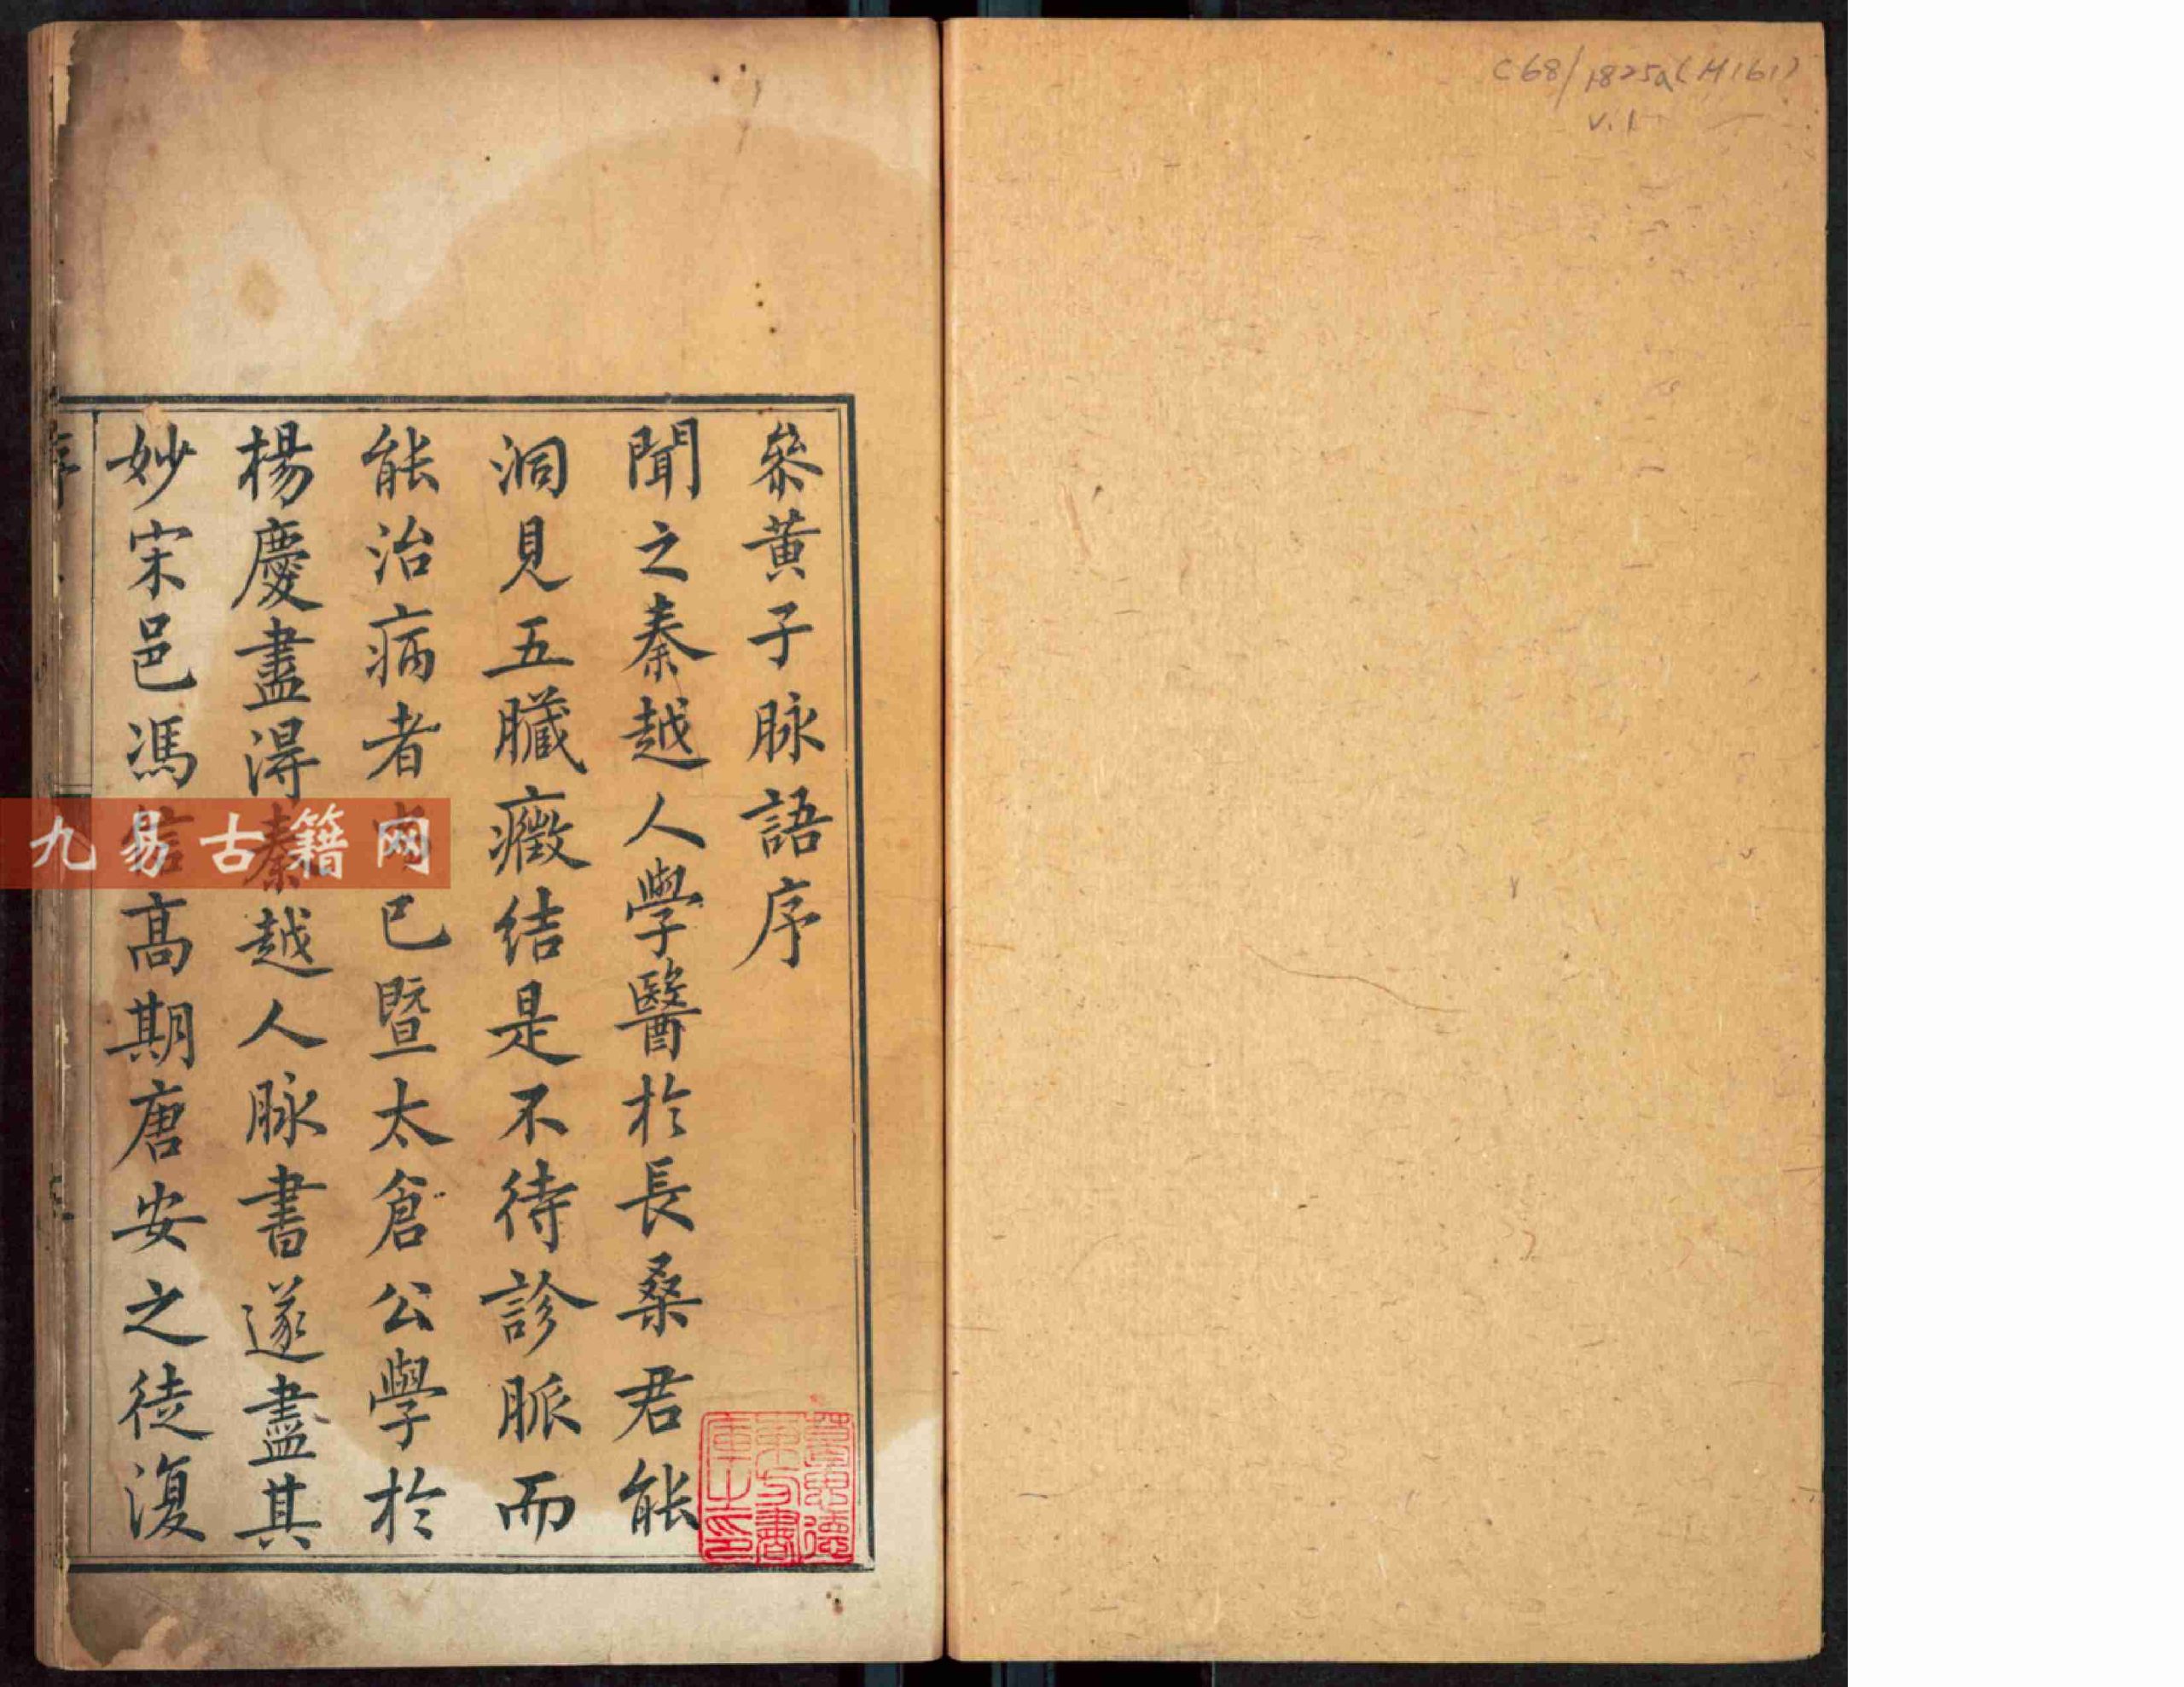 C68/1825a(H161)
v.1
叅黄子脉語序
聞之秦越人學醫於長桑君能
洞見五臟癥結是不待診脈而
能治病者已暨太倉公學於
楊慶盡淂秦越人脉書遂盡其
妙宋邑馮信髙期唐安之徒復
序
九易古籍网